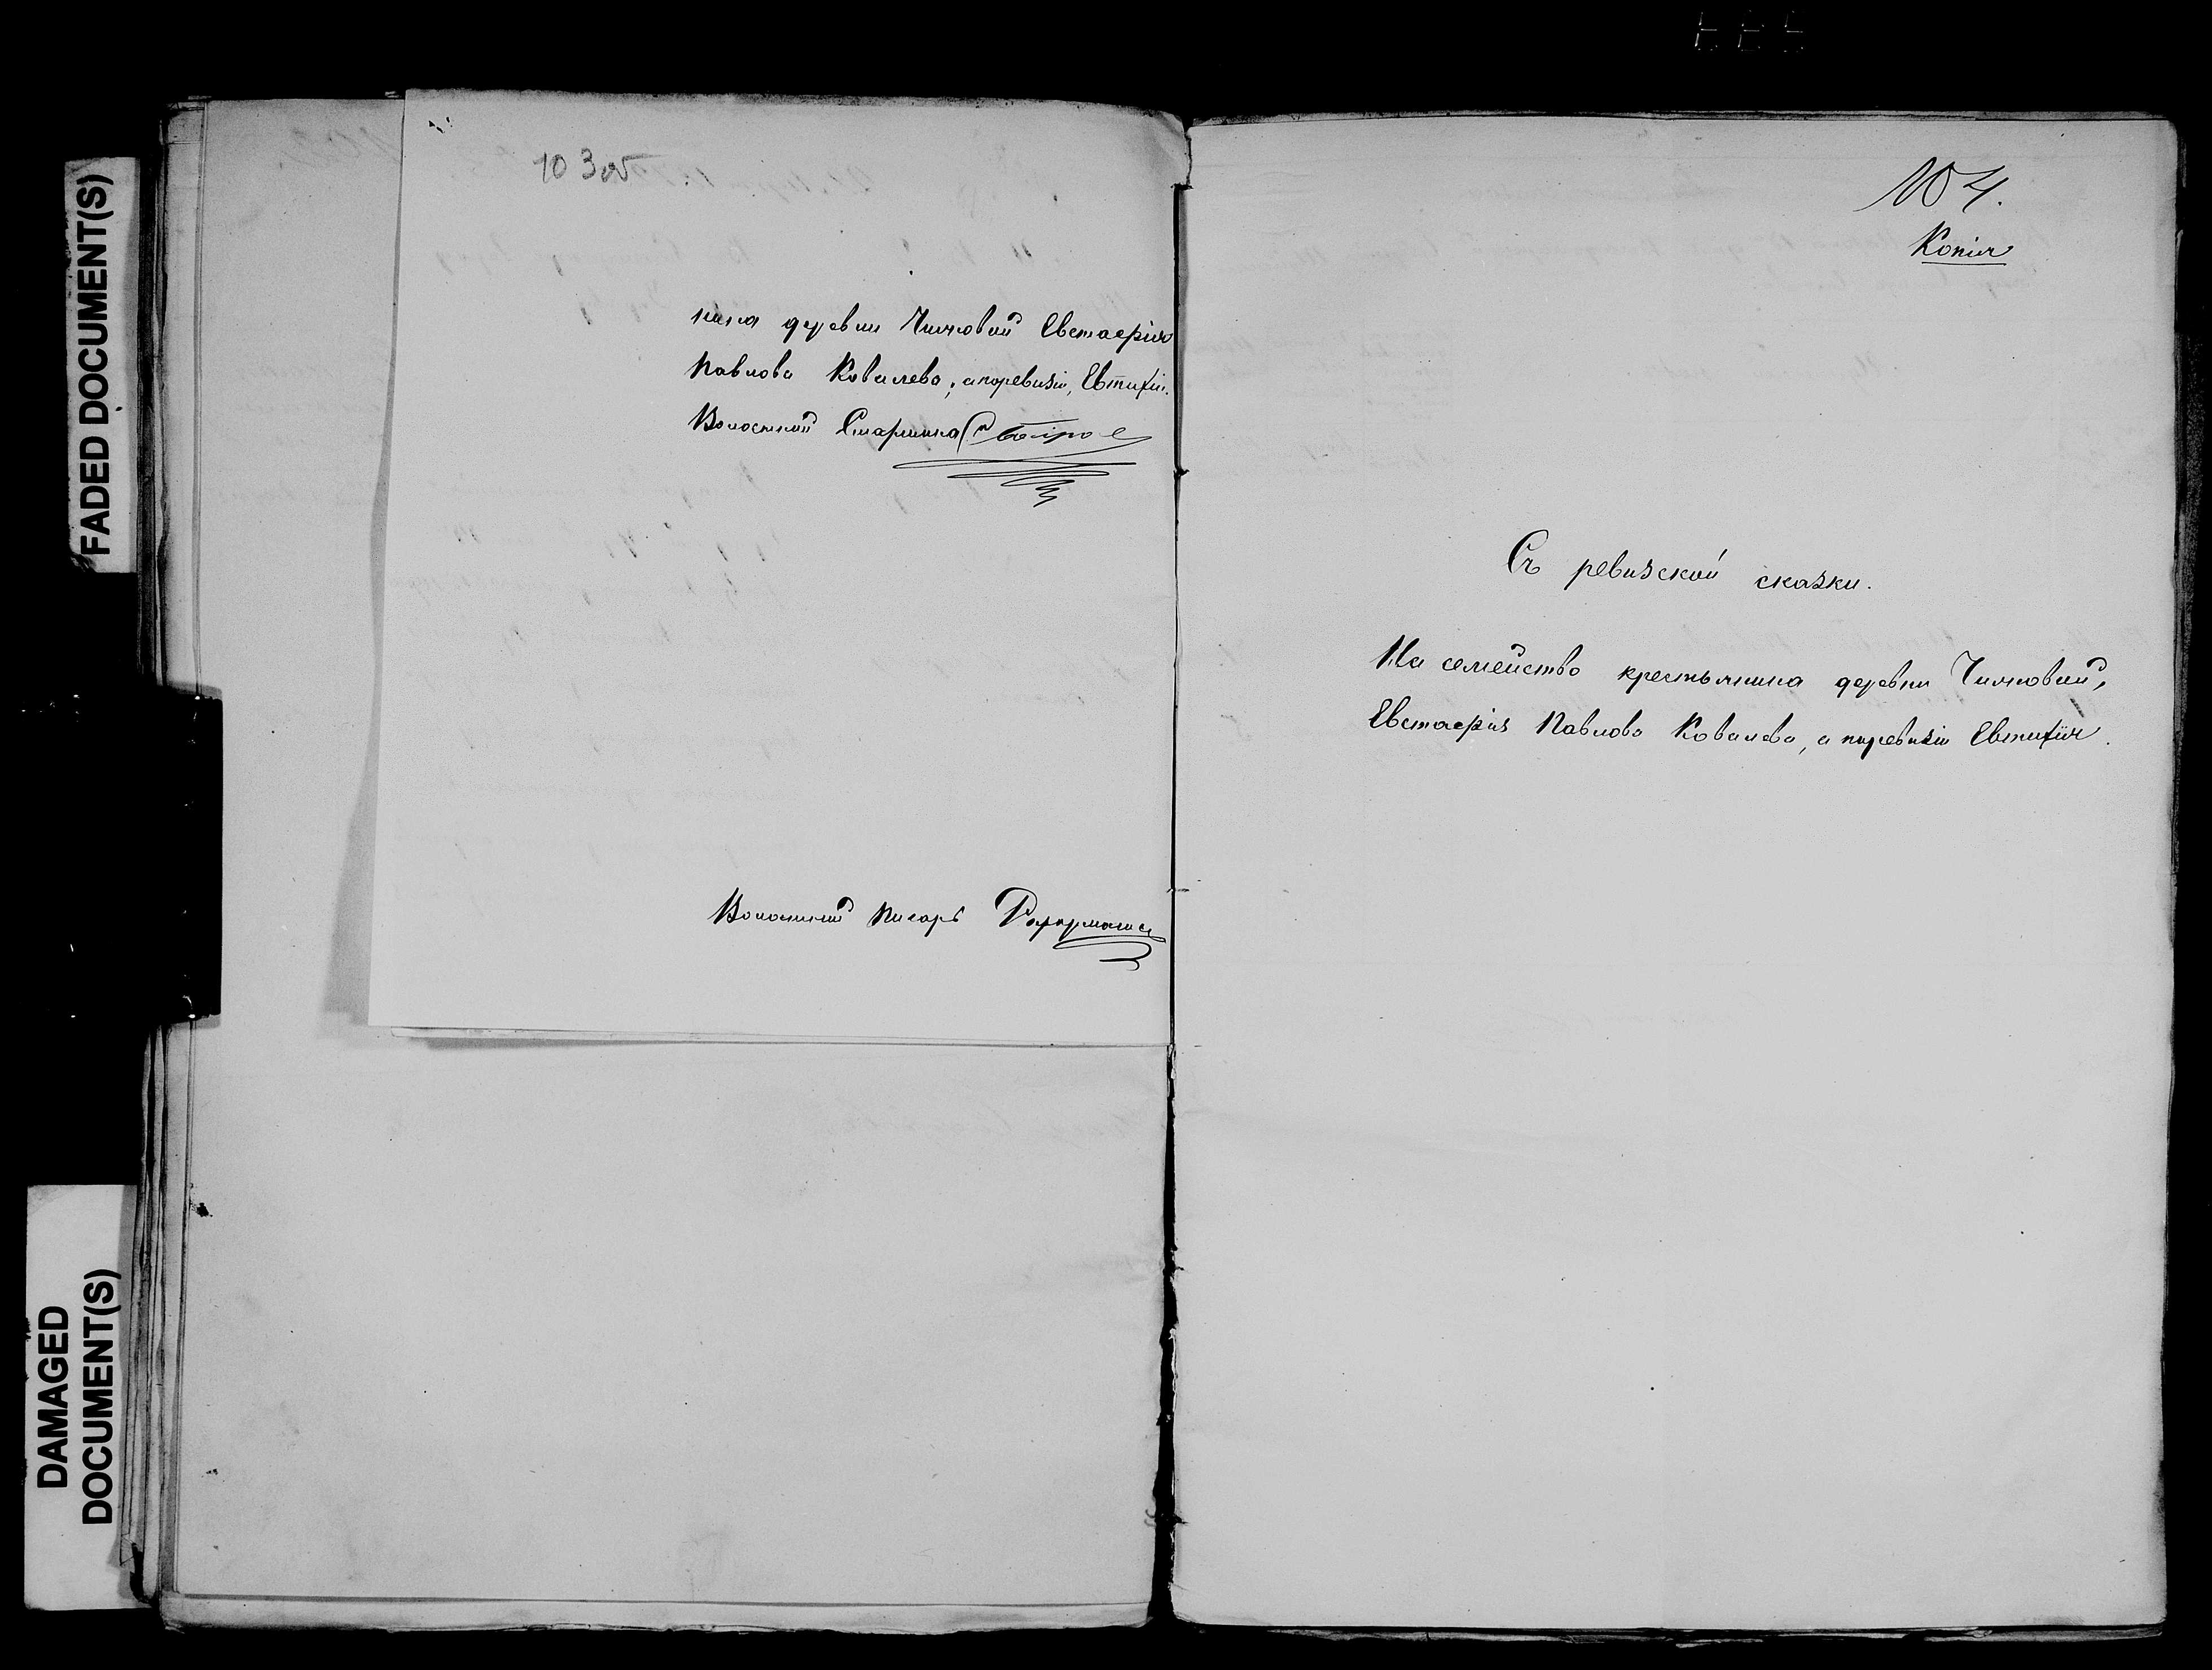 FADED DOCUMENT(S)
DAMAGED
DOCUMENT(S)
103 об
нина деревни Чиловой Евстафія
Павлова Ковалева, а поревизіи, Евтихія.
Волостной Старшина
Волостной Писарь
104.
Копія
Съ ревизской сказки.
На семейство крестьянина деревни Чиловой,
Евстафія Павлова Ковалева, а поревизіи Евтихія.